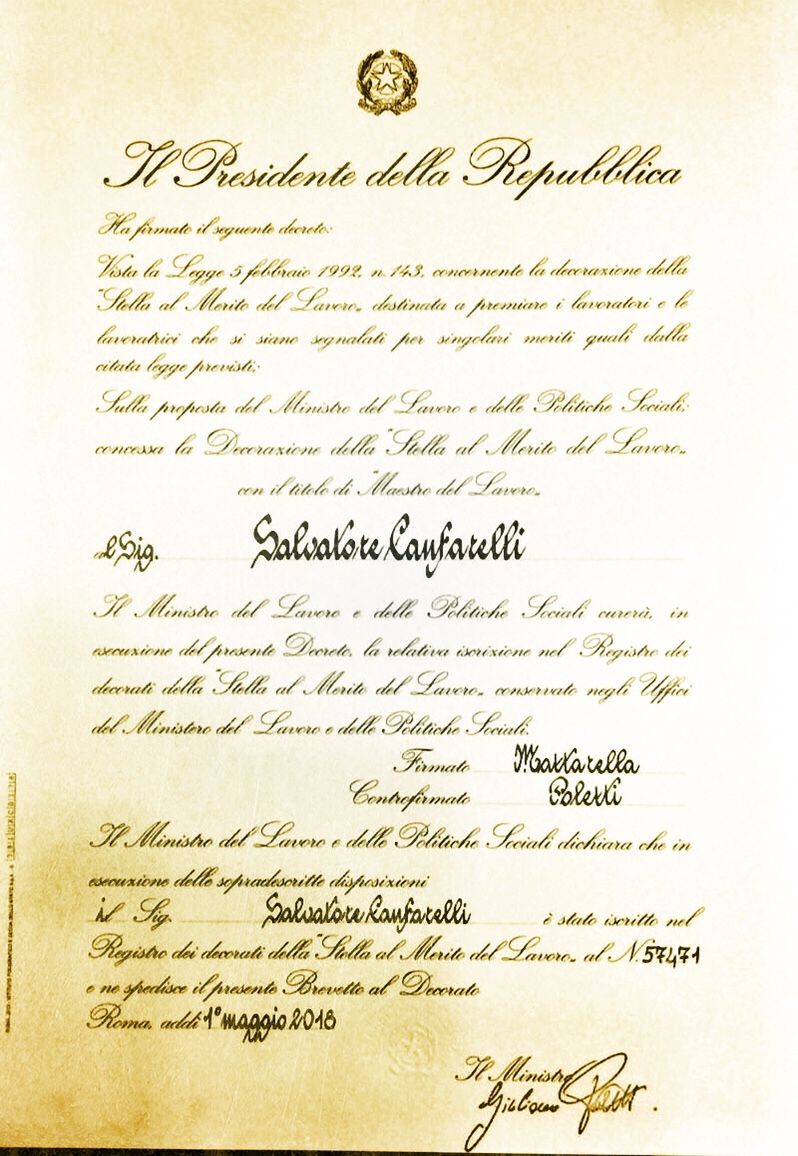 Il Presidente della Repubblica
Ha firmato il seguente decreto:
Vista la Legge 5 febbraio 1992, n. 143, concernente la decorazione della
"Stella al Merito del Lavoro„ destinata a premiare i lavoratori e le
lavoratrici che si siano segnalati per singolari meriti quali dalla
citata legge previsti;
Sulla proposta del Ministro del Lavoro e delle Politiche Sociali;
concessa la Decorazione della "Stella al Merito del Lavoro„
con il titolo di "Maestro del Lavoro„
al Sig. Salvatore Canfarelli
Il Ministro del Lavoro e delle Politiche Sociali curerà, in
esecuzione del presente Decreto, la relativa iscrizione nel Registro dei
decorati della "Stella al Merito del Lavoro„ conservato negli Uffici
del Ministero del Lavoro e delle Politiche Sociali.
Firmato Mattarella
Controfirmato Poletti
Il Ministro del Lavoro e delle Politiche Sociali dichiara che in
esecuzione delle sopradescritte disposizioni
il Sig. Salvatore Canfarelli è stato iscritto nel
Registro dei decorati della "Stella al Merito del Lavoro„ al N. 57471
e ne spedisce il presente Brevetto al Decorato
Roma, addì 1° maggio 2018
Il Ministro
Giuliano Poletti